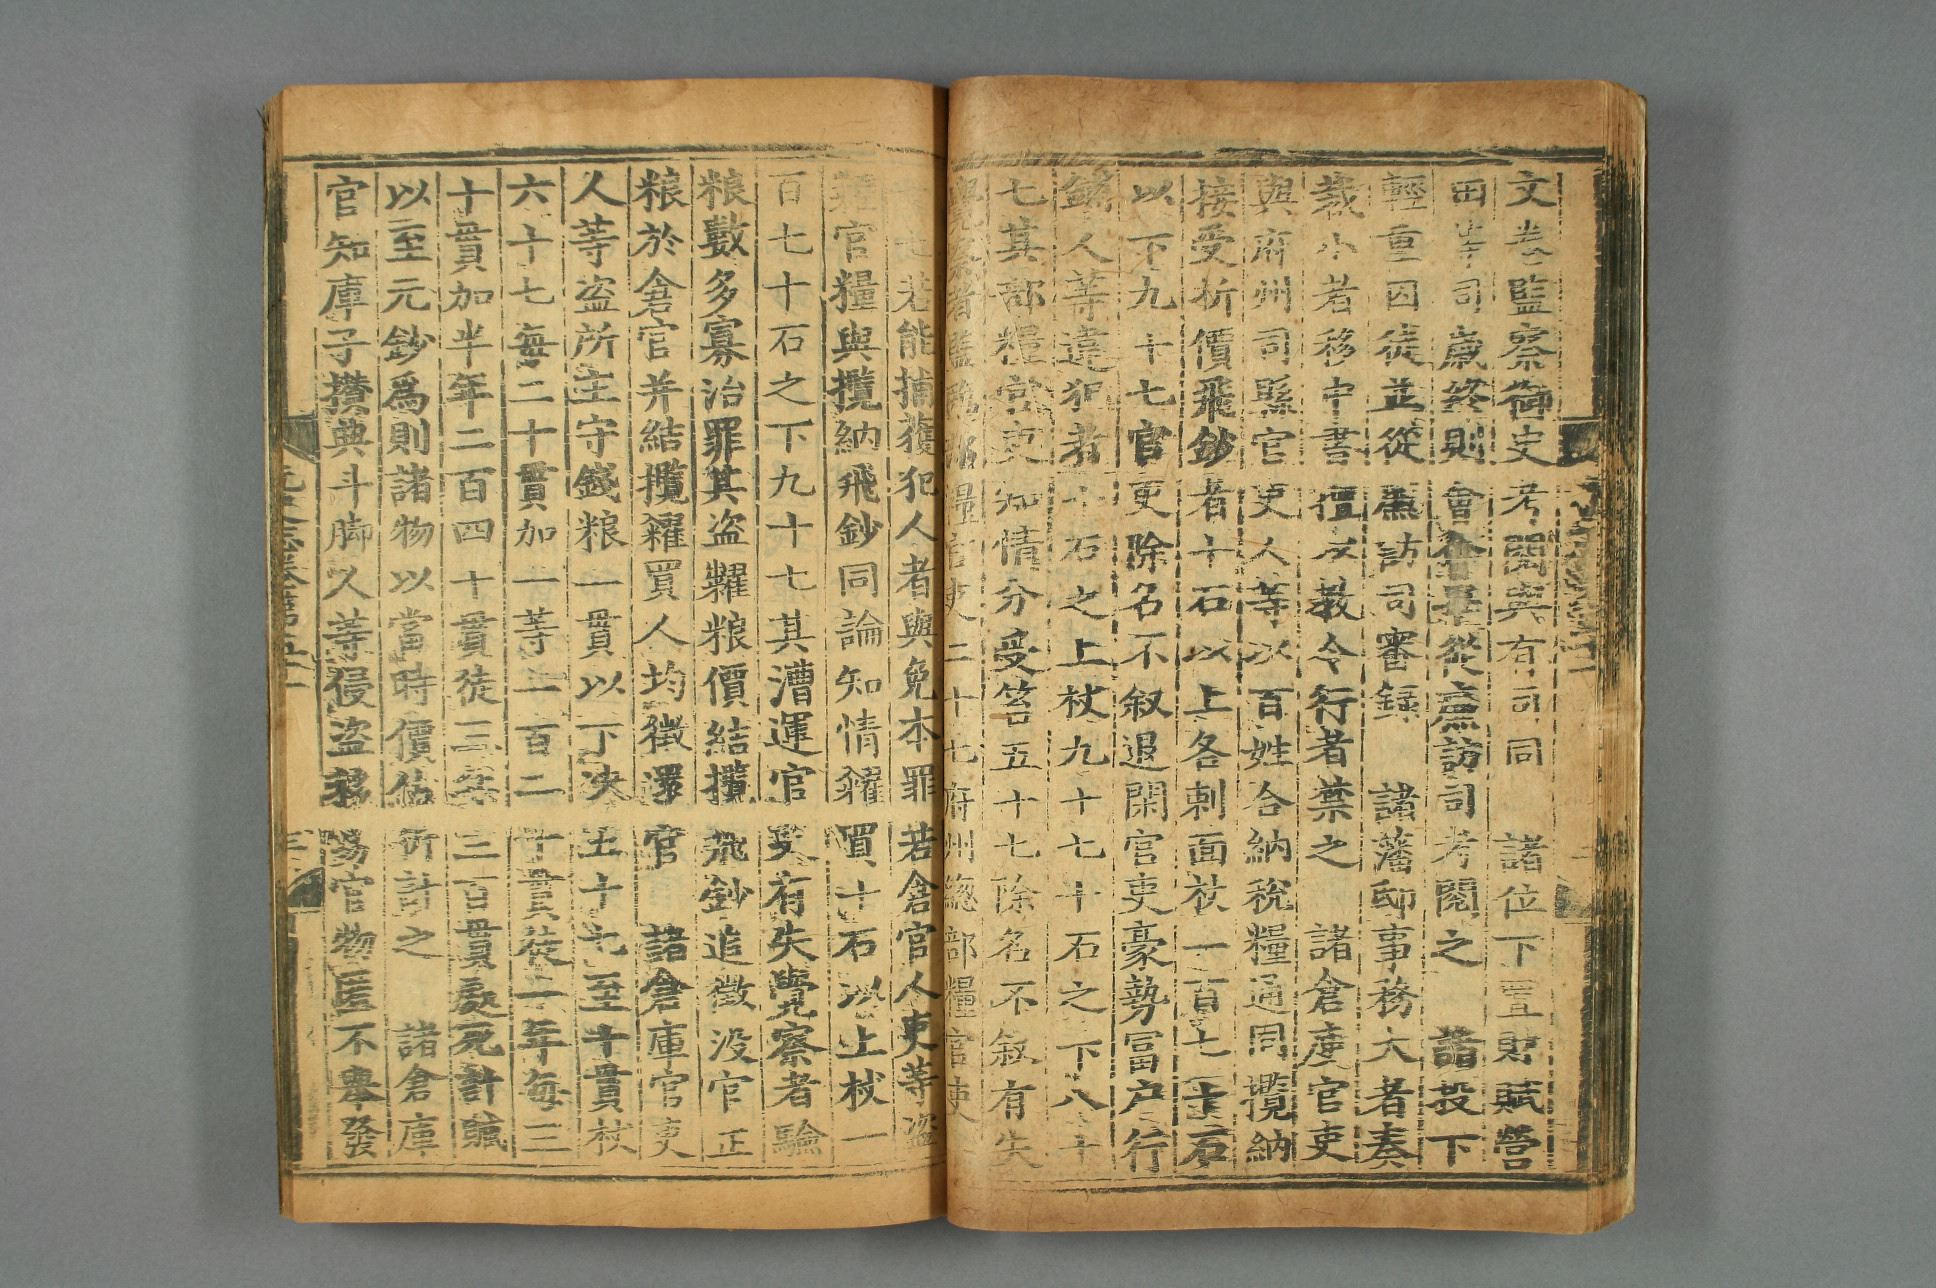 文卷監察御史考閱與有司同　諸位下置財賦營
田等司歲終則會會畢從廉訪司考閱之　諸投下
輕重囚徒並從廉訪司審錄　諸藩邸事務大者奏
裁小者移中書擅以教令行者禁之　諸倉庫官吏
與府州司縣官吏人等以百姓合納稅糧通同攬納
接受折價飛鈔者十石以上各刺面杖一百七十石
以下九十七官吏除名不敘退閑官吏豪勢富戶行
鋪人等違犯者十石之上杖九十七十石之下八十
七其部糧官吏知情分受笞五十七除名不敘有失
覺察者監臨部糧官吏二十七府州總部糧官吏
若能捕獲犯人者與免本罪若倉官人吏等盜
糶官糧與攬納飛鈔同論知情糴買十石以上杖一
百七十石之下九十七其漕運官吏有失覺察者驗
粮數多寡治罪其盜糶粮價結攬飛鈔追徵沒官正
粮於倉官并結攬糴買人均徵還官　諸倉庫官吏
人等盜所主守錢粮一貫以下決五十七至十貫杖
六十七每二十貫加一等一百二十貫徒一年每三
十貫加半年二百四十貫徒三年三百貫處死計贓
以至元鈔爲則諸物以當時價估折計之　諸倉庫
官知庫子攢典斗脚人等侵盜移易官物匿不舉發